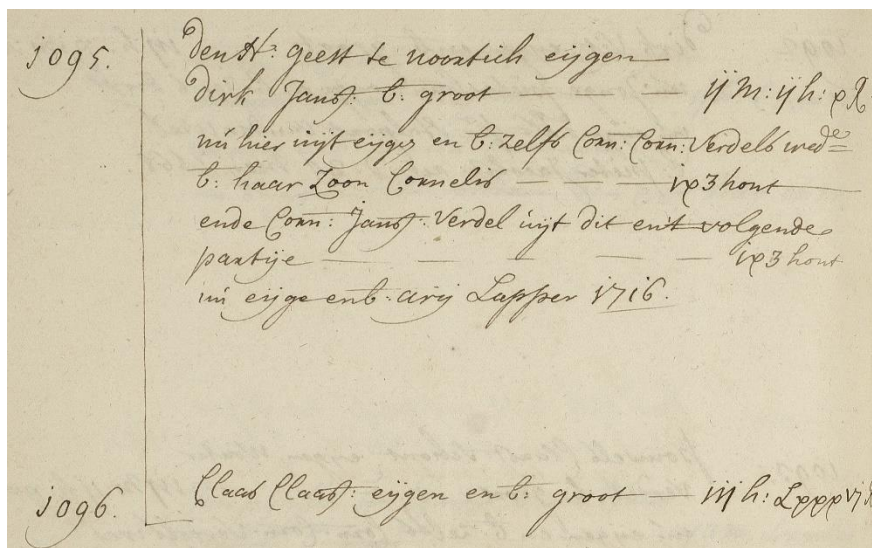 1095.
den H: geest te noortich eijgen
dirk Jans: b: groot — — ij m: ij h: x R
nú hier uijt eijgen en b: zelfs Corn: Corn: Verdels wede
b: haar Zoon Cornelis — — — ix3 hont
ende Corn: Jans: Verdel uijt dit en't volgende
partije — — — — — ix3 hont
nú eijge en b: arij Lapper 1716.
1096.
Claas Claas: eijgen en b: groot — iij h: Lxxxvj R